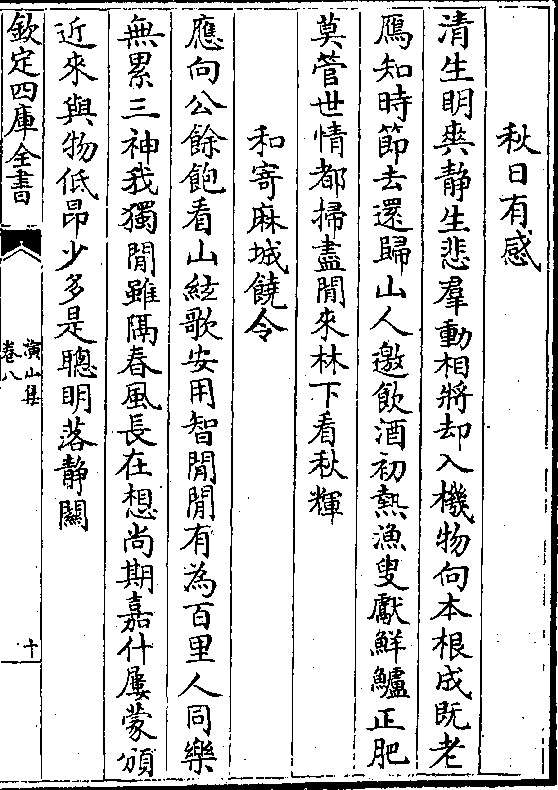 秋日有感
清生明爽静生悲羣動相將却入機物向本根成既老
鴈知時節去還歸山人邀飲酒初熱漁叟獻鮮鱸正肥
莫管世情都掃盡閒來林下看秋輝
和寄麻城饒令
應向公餘飽看山絃歌安用智閒閒有為百里人同樂
無累三神我獨閒雖隔春風長在想尚期嘉什屢蒙頒
近來與物低昂少多是聰明落静關
欽定四庫全書
演山集
卷八
十